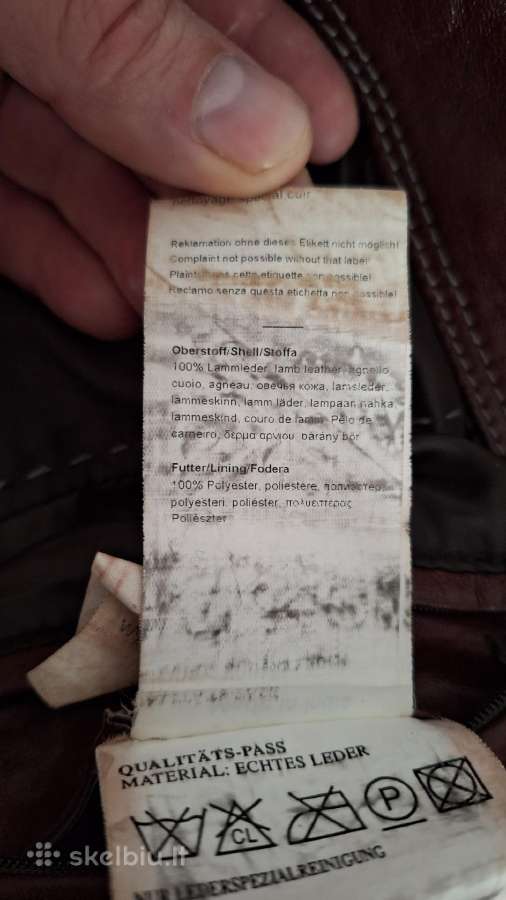 nettoyage special cuir
Reklamation ohne dieses Etikett nicht möglich!
Complaint not possible without that label
Plaint sans cette etiquette non possible!
Reclamo senza questa etichetta non possible!
Oberstoff/Shell/Stoffa
100% Lammleder, lamb leather, agnello
cuoio, agneau, овечья кожа, lamsleder,
lammeskinn, lamm läder, lampaan nahka
lammeskind, couro de Pelo de
carneiro, δερμα αρνιου, bárány bőr
Futter/Lining/Fodera
100% Polyester, poliestere,
polyesteri, poliéster,
Poliészter
QUALITÄTS-PASS
MATERIAL: ECHTES LEDER
CL
P
NUR LEDERSPEZIALREINIGUNG
skelbiu.lt